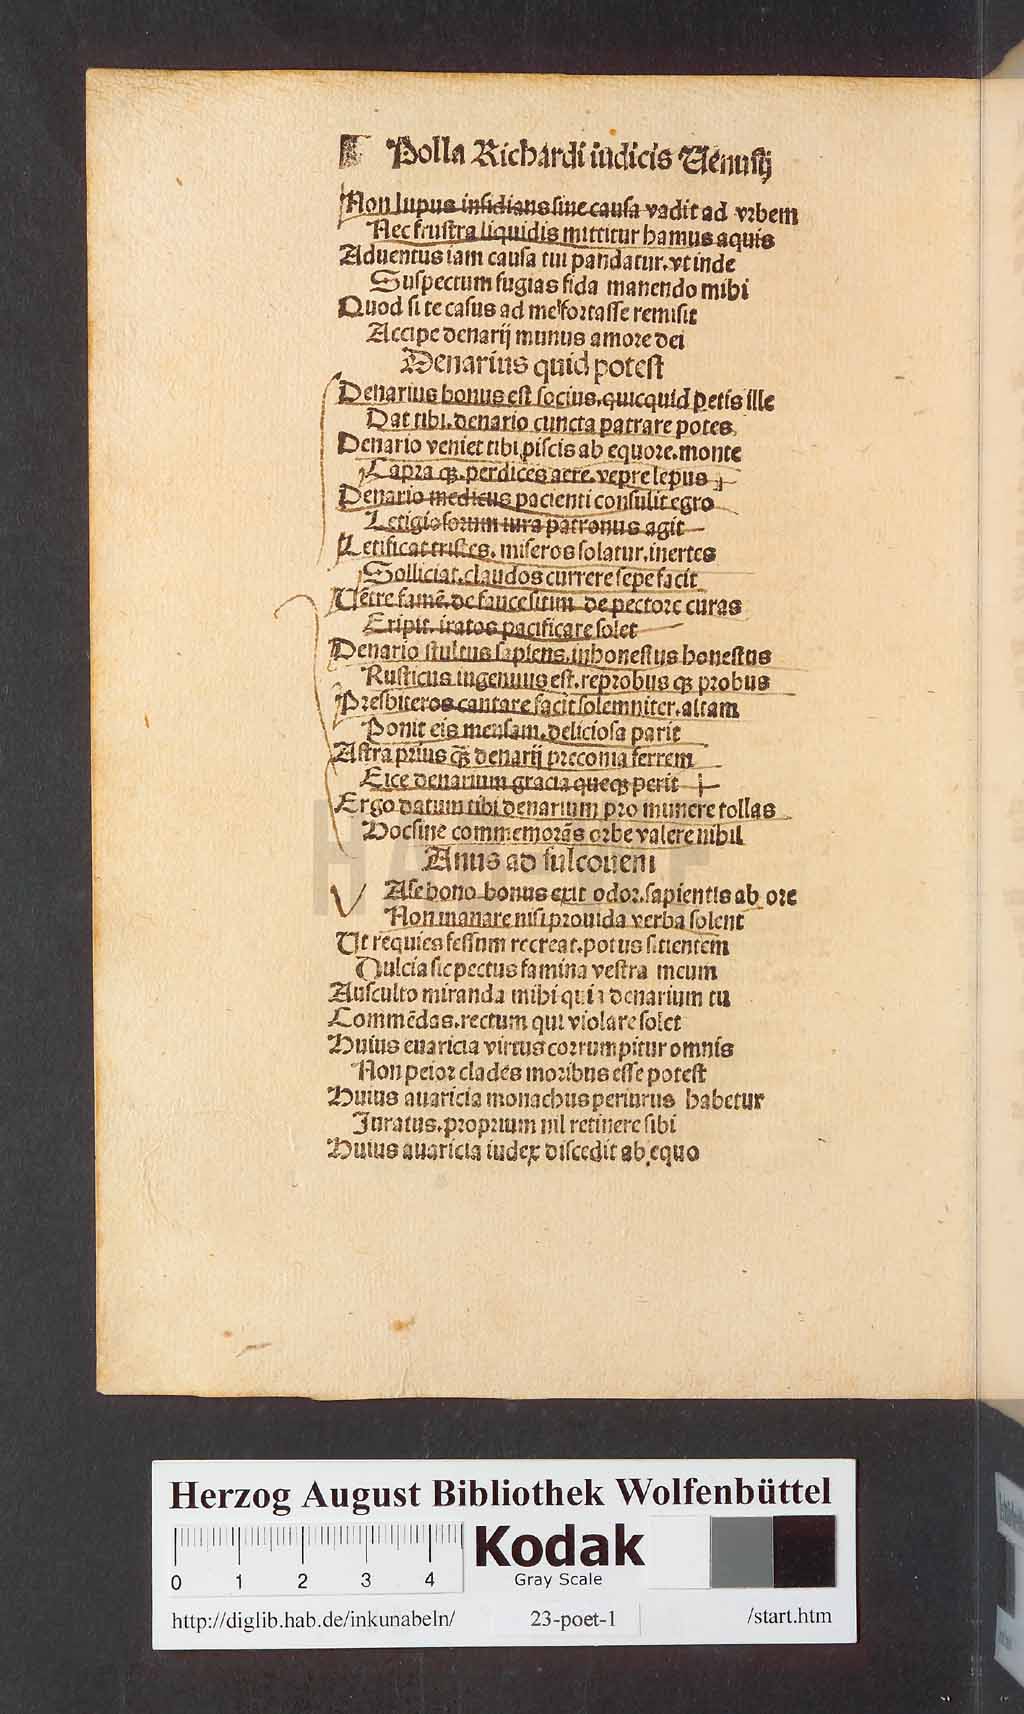 Polla Richardi iudicis Uenusij
Non lupus insidians sine causa vadit ad vrbem
Nec frustra liquidis mittitur hamus aquis
Aduentus iam causa tui pandatur. vt inde
Suspectum fugias fida manendo mihi
Quod si te casus ad me fortasse remisit
Accipe denarij munus amore dei
Denarius quid potest
Denarius bonus est socius. quicquid petis ille
Dat tibi. denario cuncta patrare potes
Denario veniet tibi piscis ab equore. monte
Capra qꝫ. perdices aere. vepre lepus
Denario medicus pacienti consulit egro
Letigiosorum iura patronus agit
Letificat tristes. miseros solatur. inertes
Solliciat. claudos currere sepe facit
Uētre famē. de fauce sitim de pectore curas
Eripit. iratos pacificare solet
Denario stultus sapiens. inhonestus honestus
Rusticus ingenuus est. reprobus qꝫ probus
Presbiteros cantare facit solemniter. altam
Ponit eis mensam. deliciosa parit
Astra prius qꝫ̄ denarij preconia ferrem
Eice denarium gracia queqꝫ perit
Ergo datum tibi denarium pro munere tollas
Hoc sine commemorās orbe valere nihil
Anus ad fulconem
Ase bono bonus exit odor. sapientis ab ore
Non manare nisi prouida verba solent
Ut requies fessum recreat. potus sitientem
Dulcia sic pectus famina vestra meum
Ausculto miranda mihi quia denarium tu
Commēdas. rectum qui violare solet
Huius euaricia virtus corrumpitur omnis
Non peior clades moribus esse potest
Huius auaricia monachus periurus habetur
Iuratus. proprium nil retinere sibi
Huius auaricia iudex discedit ab equo
Herzog August Bibliothek Wolfenbüttel
Kodak
Gray Scale
0 1 2 3 4
http://diglib.hab.de/inkunabeln/ 23-poet-1 /start.htm